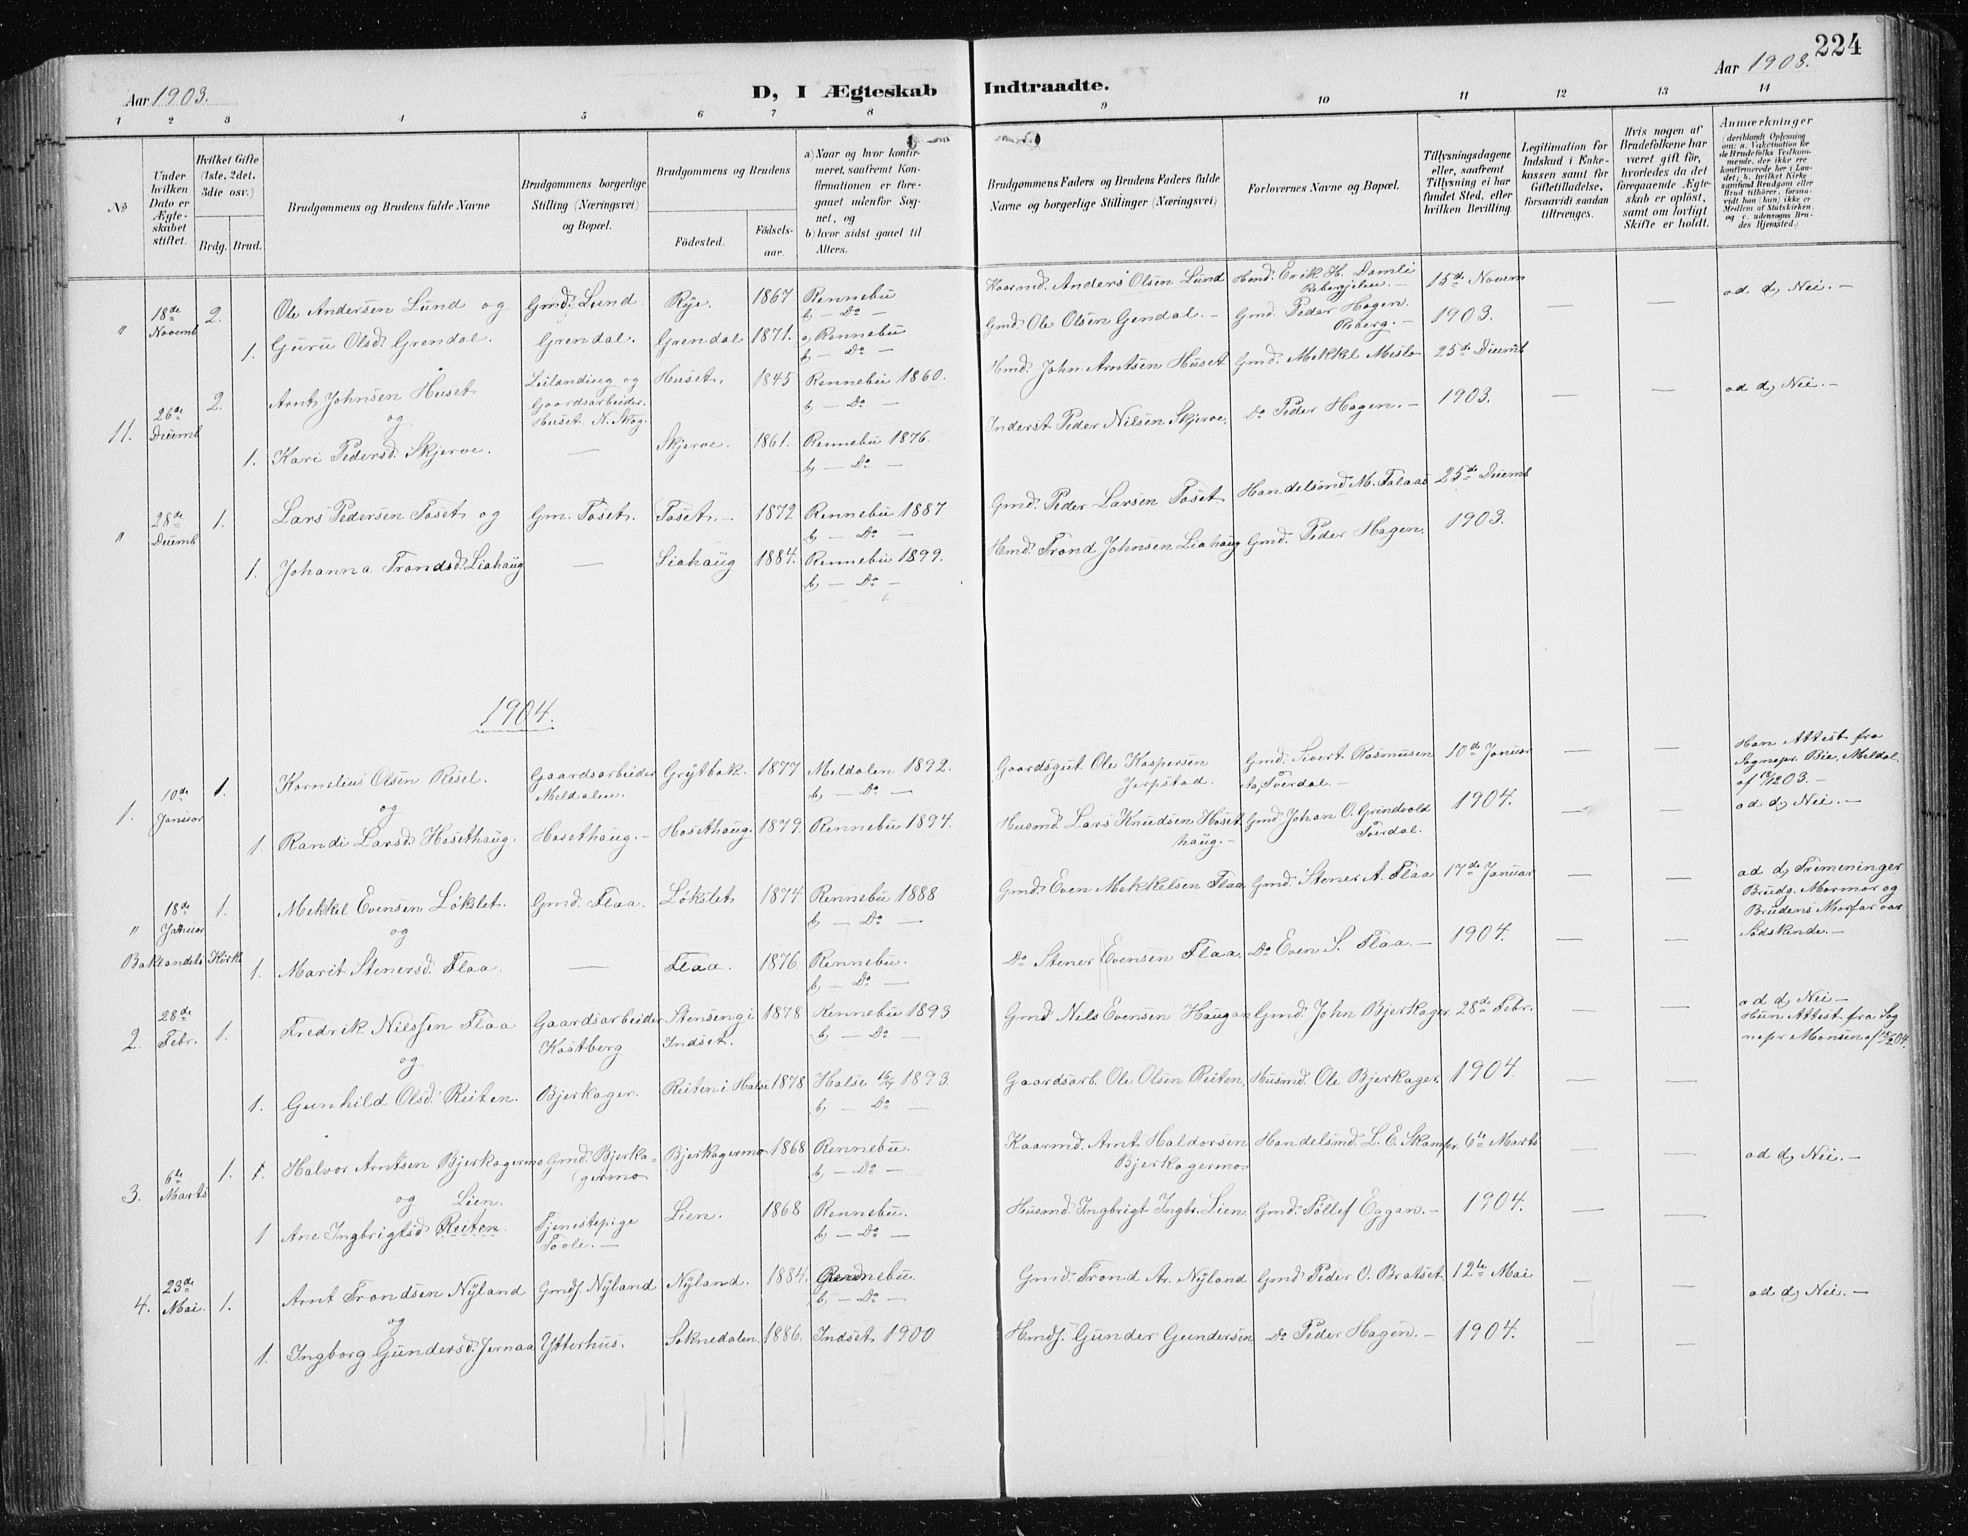 224
Aar 1903.
D, I Ægteskab Indtraadte.
Aar 1903.
1 2 3 4 5 6 7 8 9 10 11 12 13 14
No
Under hvilken Dato er Ægteskabet stiftet.
Hvilket Gifte (1ste, 2det, 3die osv.)
Brdg. Brud.
Brudgommens og Brudens fulde Navne
Brudgommens borgerlige Stilling (Næringsvei) og Bopæl.
Brudgommens og Brudens
Födested.
Födselsaar.
a) Naar og hvor konfirmeret, saafremt Konfirmationen er foregaaet udenfor Sognet, og
b) hvor sidst gaaet til Alters.
Brudgommens Faders og Brudens Faders fulde Navne og borgerlige Stillinger (Næringsvei)
Forlovernes Navne og Bopæl.
Tillysningsdagene eller, saafremt Tillysning ei har fundet Sted, efter hvilken Bevilling.
Legitimation for Indskud i Enkekassen samt for Giftetilladelse, forsaavidt saadan tiltrenges.
Hvis nogen af Brudefolkene har været gift før, hvorledes da det foregaaende Ægteskab er opløst, samt om lovligt Skifte er holdt.
Anmærkninger (deriblandt Oplysning om: a. Vakcination for de Brudefolks Vedkommende, der ikke ere konfirmerede her i Landet; b. hvilket Kirkesamfund Brudgom eller Brud tilhører, forsaavidt han (hun) ikke er Medlem af Statskirken, og c. udensogns Brudes Hjemsted.)
" 18de Novemb 2. Ole Andersen Lund og Gmd. Lund. Rye. 1867 Rennebu b) — Do — Kaarmd. Anders Olsen Lund Hmd. Erik H. Damli 15de Novem — — ad d) Nei. —
1. Guru Olsd. Grendal. Grendal. Grendal 1871. a) Rennebu b — Do — Gmd. Ole Olsen Gendal. — Gmd. Peder Hagen Roberg. — 1903.
11. 26de Dcemb 2. Arnt Johnsen Huset og Leilending og Gaardsarbeider. Huset N. Skog. Huset. 1845 Rennebu 1860. b) — Do — Hmd. John Arntsen Huset Gmd. Mekkel Meslo 25de Dcemb — — ad d) Nei. —
1. Kari Pedersd. Skjerve. — Skjerve. 1861. Rennebu 1876. b) — Do — Inderst Peder Nilsen Skjerve. Do Peder Hagen. — 1903.
" 28de Dcemb 1. Lars Pedersen Toset og Gm. Toset. Toset. — 1872 Rennebu 1887 b) — Do — Gmd. Peder Larsen Toset Handelsmd M. Talaas 25de Dcemb
1. Johanna Trondsd. Liahaug — Liahaug 1884. Rennebu 1899. b) — Do — Hmd. Trond Johnsen Liahaug Gmd. Peder Hagen. 1903.
1904.
1. 10de Januar 1. Kornelius Olsen Resel. og Gaardsarbeider Meldalen. Grytbak. 1877 Meldalen 1892. b) — Do — Gaardsgut. Ole Kaspersen Jerpstad. Gmd. Sivert Rasmusen Aa, Tverdal. 10de Januar — — Han Attest fra Sognepr. Bie, Meldal, af 18/12 03. — ad d) Nei. —
1. Randi Larsd. Hosethaug. Hosethaug. — Hosethaug. 1879. Rennebu 1894. Husmd. Lars Knudsen Hosethaug. — Gmd. Johan O. Grindvold Tverdal. 1904. — —
" 18de Januar 1. Mekkel Evensen Løkslet. og Gmd. Flaa. Løkslet 1874 Rennebu 1888 b) — Do — Gmd. Even Mekkelsen Flaa Gmd. Stener A. Flaa 17de Januar — — ad d) Tremeninger Brudg. Mormor og Brudens Morfar var Sødskende. —
Baklandets Kirke 1. Marit Stenersd. Flaa. — Flaa. 1876 Rennebu. b) — Do — Do Stener Evensen Flaa. Do Even S. Flaa. — 1904. — —
2. 28de Febr. 1. Fredrik Nielssen Flaa og Gaardsarbeider Kostberg Stensengi Indset. 1878 Rennebu 1893 b) — Do — Gmd Nils Evensen Haugan Gmd. John Bjerkager. 28de Febr. — ad d) Nei — Hun Attest fra Sognepr Monsen af 204.
1. Gunhild Olsd. Reiten. Bjerkager. Reiten i Halse 1878 Halse 16/4 1893. b) — Do — Gaardsarb. Ole Olsen Reiten. Husmd. Ole Bjerkager. 1904.
3. 6te Marts 1. 1. Halvor Arntsen Bjerkagermo og Gmd. Bjerkagermo Bjerkagermo 1868 Rennebu. b) — Do — Kaarmd. Arnt Haldorsen Bjerkagermo Handelsmd. L. E. Skamfer. 6te Marts ad d) Nei. —
1 Ane Ingbrigtsd Reiten. Lien. Tjenestepige Toole. — Lien. 1868 Rennebu. b) — Do — Husmd Ingbrigt Ingbr. Lien Gmd. Tøllef Eggan. — 1904.
4. 23de Mai. 1. Arnt Trondsen Nyland og Gmds. Nyland Nyland. 1884. Rennebu. b) — Do — Gmd. Trond Ar. Nyland Gmd. Peder O. Bratset. 12te Mai — — ad d) Nei. —
1. Ingborg Gundersd. Jernaa Ytterhus. Soknedalen. 1886. Indset 1900 Hmds. Gunder Gundersen Do Peder Hagen. — 1904. — —